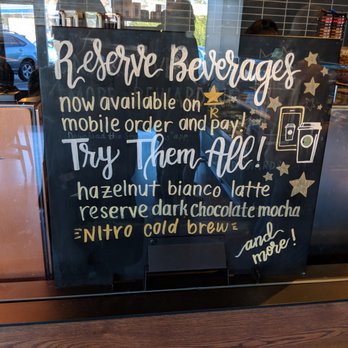 Reserve Beverages
now available on
R
mobile order and pay!
Try Them All!
hazelnut bianco latte
reserve dark chocolate mocha
=NItro cold brew=
and
more!